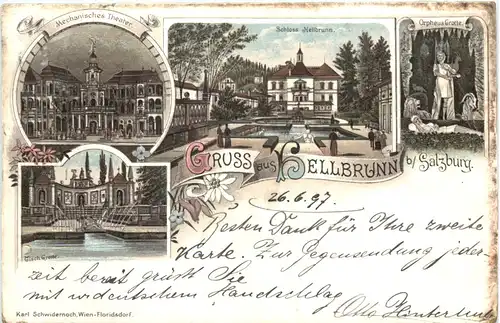 Mechanisches Theater.
Schloss Hellbrunn.
Orpheus Grotte.
GRUSS aus HELLBRUNN b/ Salzburg.
26.6.97
Besten Dank für Ihre zweite
Karte. Zur Gegensendung jeder-
zeit bereit grüßt Sie
mit widerdeutschem Handschlag
Otto
Karl Schwidernoch, Wien-Floridsdorf.